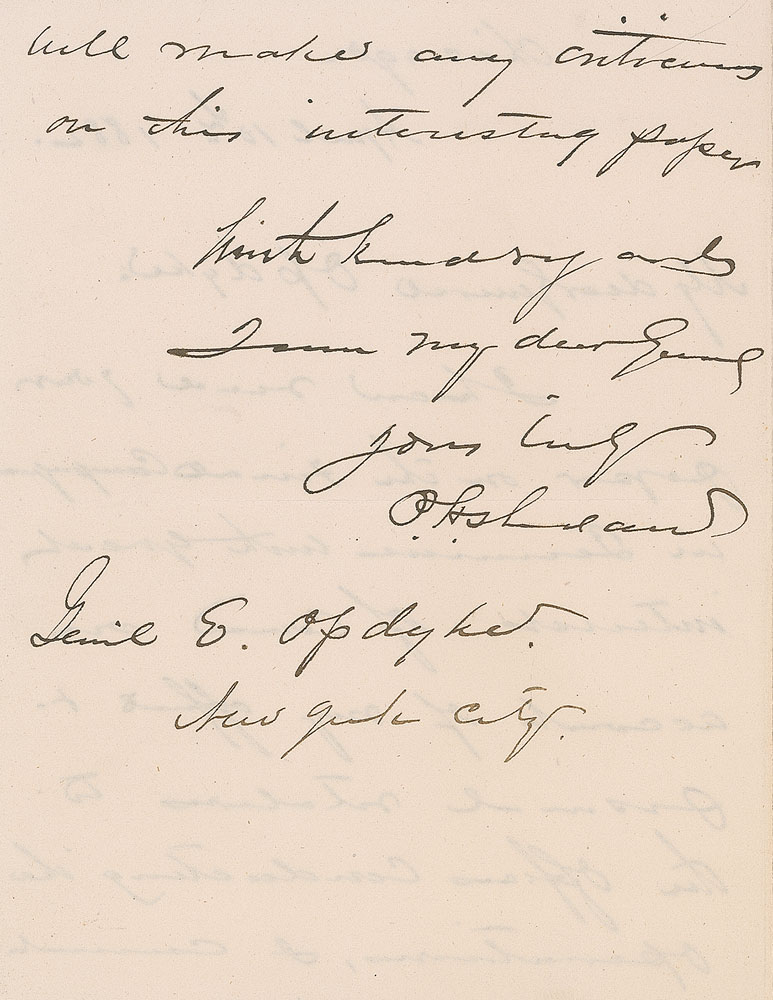 will make any criticisms
on this interesting paper
With kind regards
I am my dear Genrl
yours truly
P. H. Sheridan
Genrl E. Opdyke.
New York City.